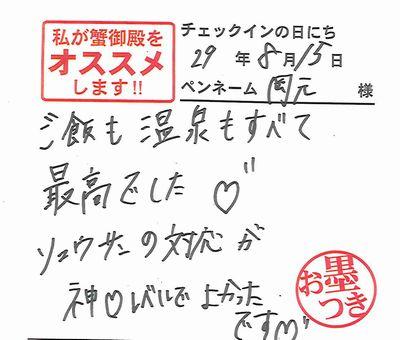 私が蟹御殿を
オススメ
します!!
チェックインの日にち
29年8月15日
ペンネーム 岡元 様
ご飯も温泉もすべて
最高でした♡"
ソュウサンの対応が
神♡レベルでよかった
です♡"
お墨つき